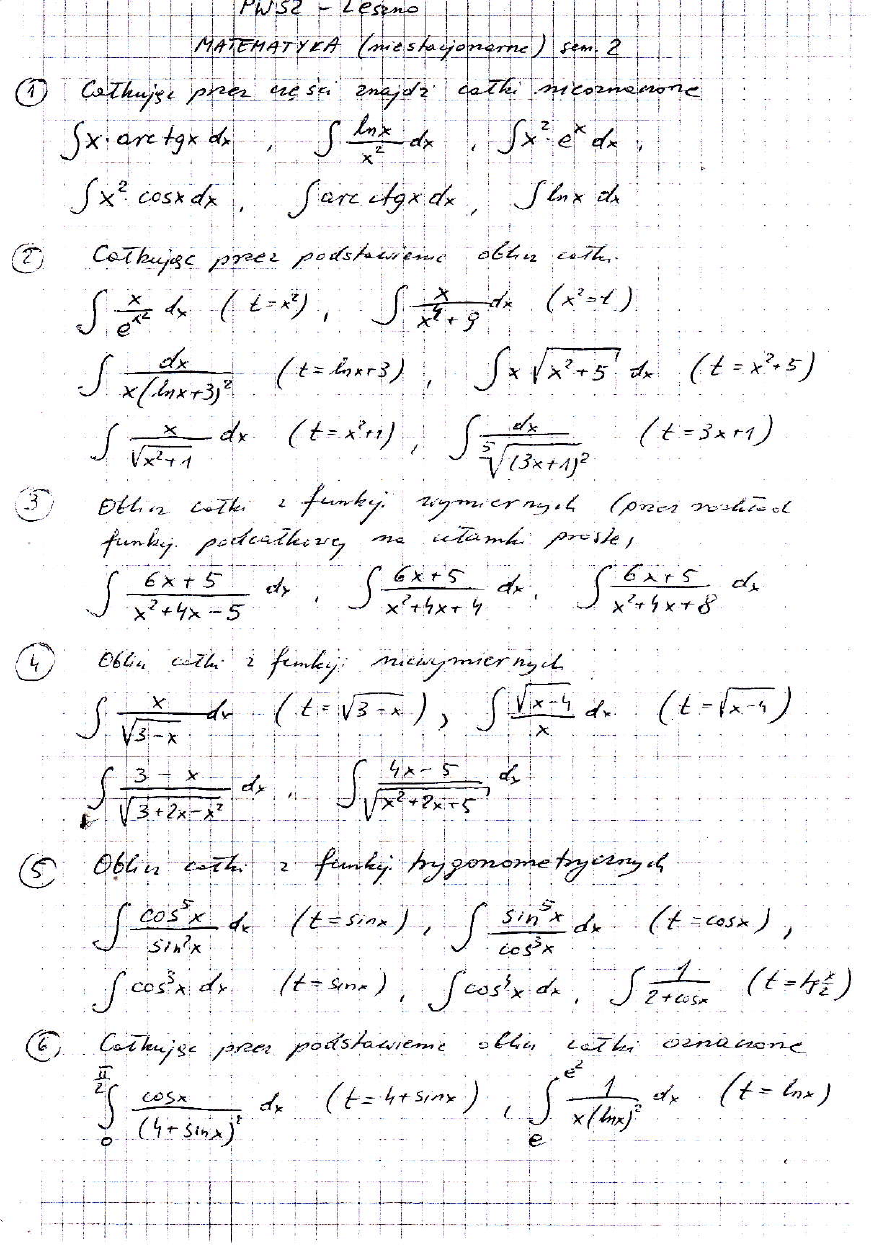 PWSZ - Leszno
MATEMATYKA (niestacjonarne) sem. 2
① Całkując przez części znajdź całki nieoznaczone
∫x·arctgx dx , ∫ lnx/x² dx , ∫x²·eˣ dx ,
∫x² cosx dx , ∫arcctgx dx , ∫lnx dx
② Całkując przez podstawienie oblicz całki.
∫ x/e^(x²) dx (t=x²) , ∫ x/(x⁴+9) dx (x²=t)
∫ dx/(x(lnx+3)²) (t=lnx+3) , ∫x √(x²+5) dx (t=x²+5)
∫ x/√(x²+1) dx (t=x²+1) , ∫ dx/⁵√((3x+1)²) (t=3x+1)
③ Oblicz całki z funkcji wymiernych (przez rozkład
funkcji podcałkowej na ułamki proste)
∫ (6x+5)/(x²+4x-5) dx , ∫ (6x+5)/(x²+4x+4) dx , ∫ (6x+5)/(x²+4x+8) dx
④ Oblicz całki z funkcji niewymiernych
∫ x/√(3-x) dx (t=√(3-x)) , ∫ √(x-4)/x dx (t=√(x-4))
∫ (3-x)/√(3+2x-x²) dx , ∫ (4x-5)/√(x²+2x+5) dx
⑤ Oblicz całki z funkcji trygonometrycznych
∫ cos⁵x/sin²x dx (t=sinx) , ∫ sin⁵x/cos³x dx (t=cosx) ,
∫cos³x dx (t=sinx) , ∫cos⁴x dx , ∫ 1/(2+cosx) (t=tg x/2)
⑥ Całkując przez podstawienie oblicz całki oznaczone
∫₀^(π/2) cosx/(4+sinx)² dx (t=4+sinx) , ∫ₑ^(e²) 1/(x(lnx)²) dx (t=lnx)